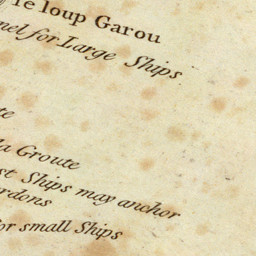 le loup Garou
nel for Large Ships
te
la Groute
st Ships may anchor
ardons
for small Ships